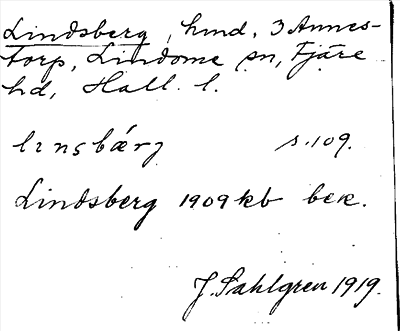 Lindsberg, hmd, 3 Annes-
torp, Lindome sn, Fjäre
hd, Hall. l.
linsbærj s. 109.
Lindsberg 1909 kb bek.
J. Sahlgren 1919.